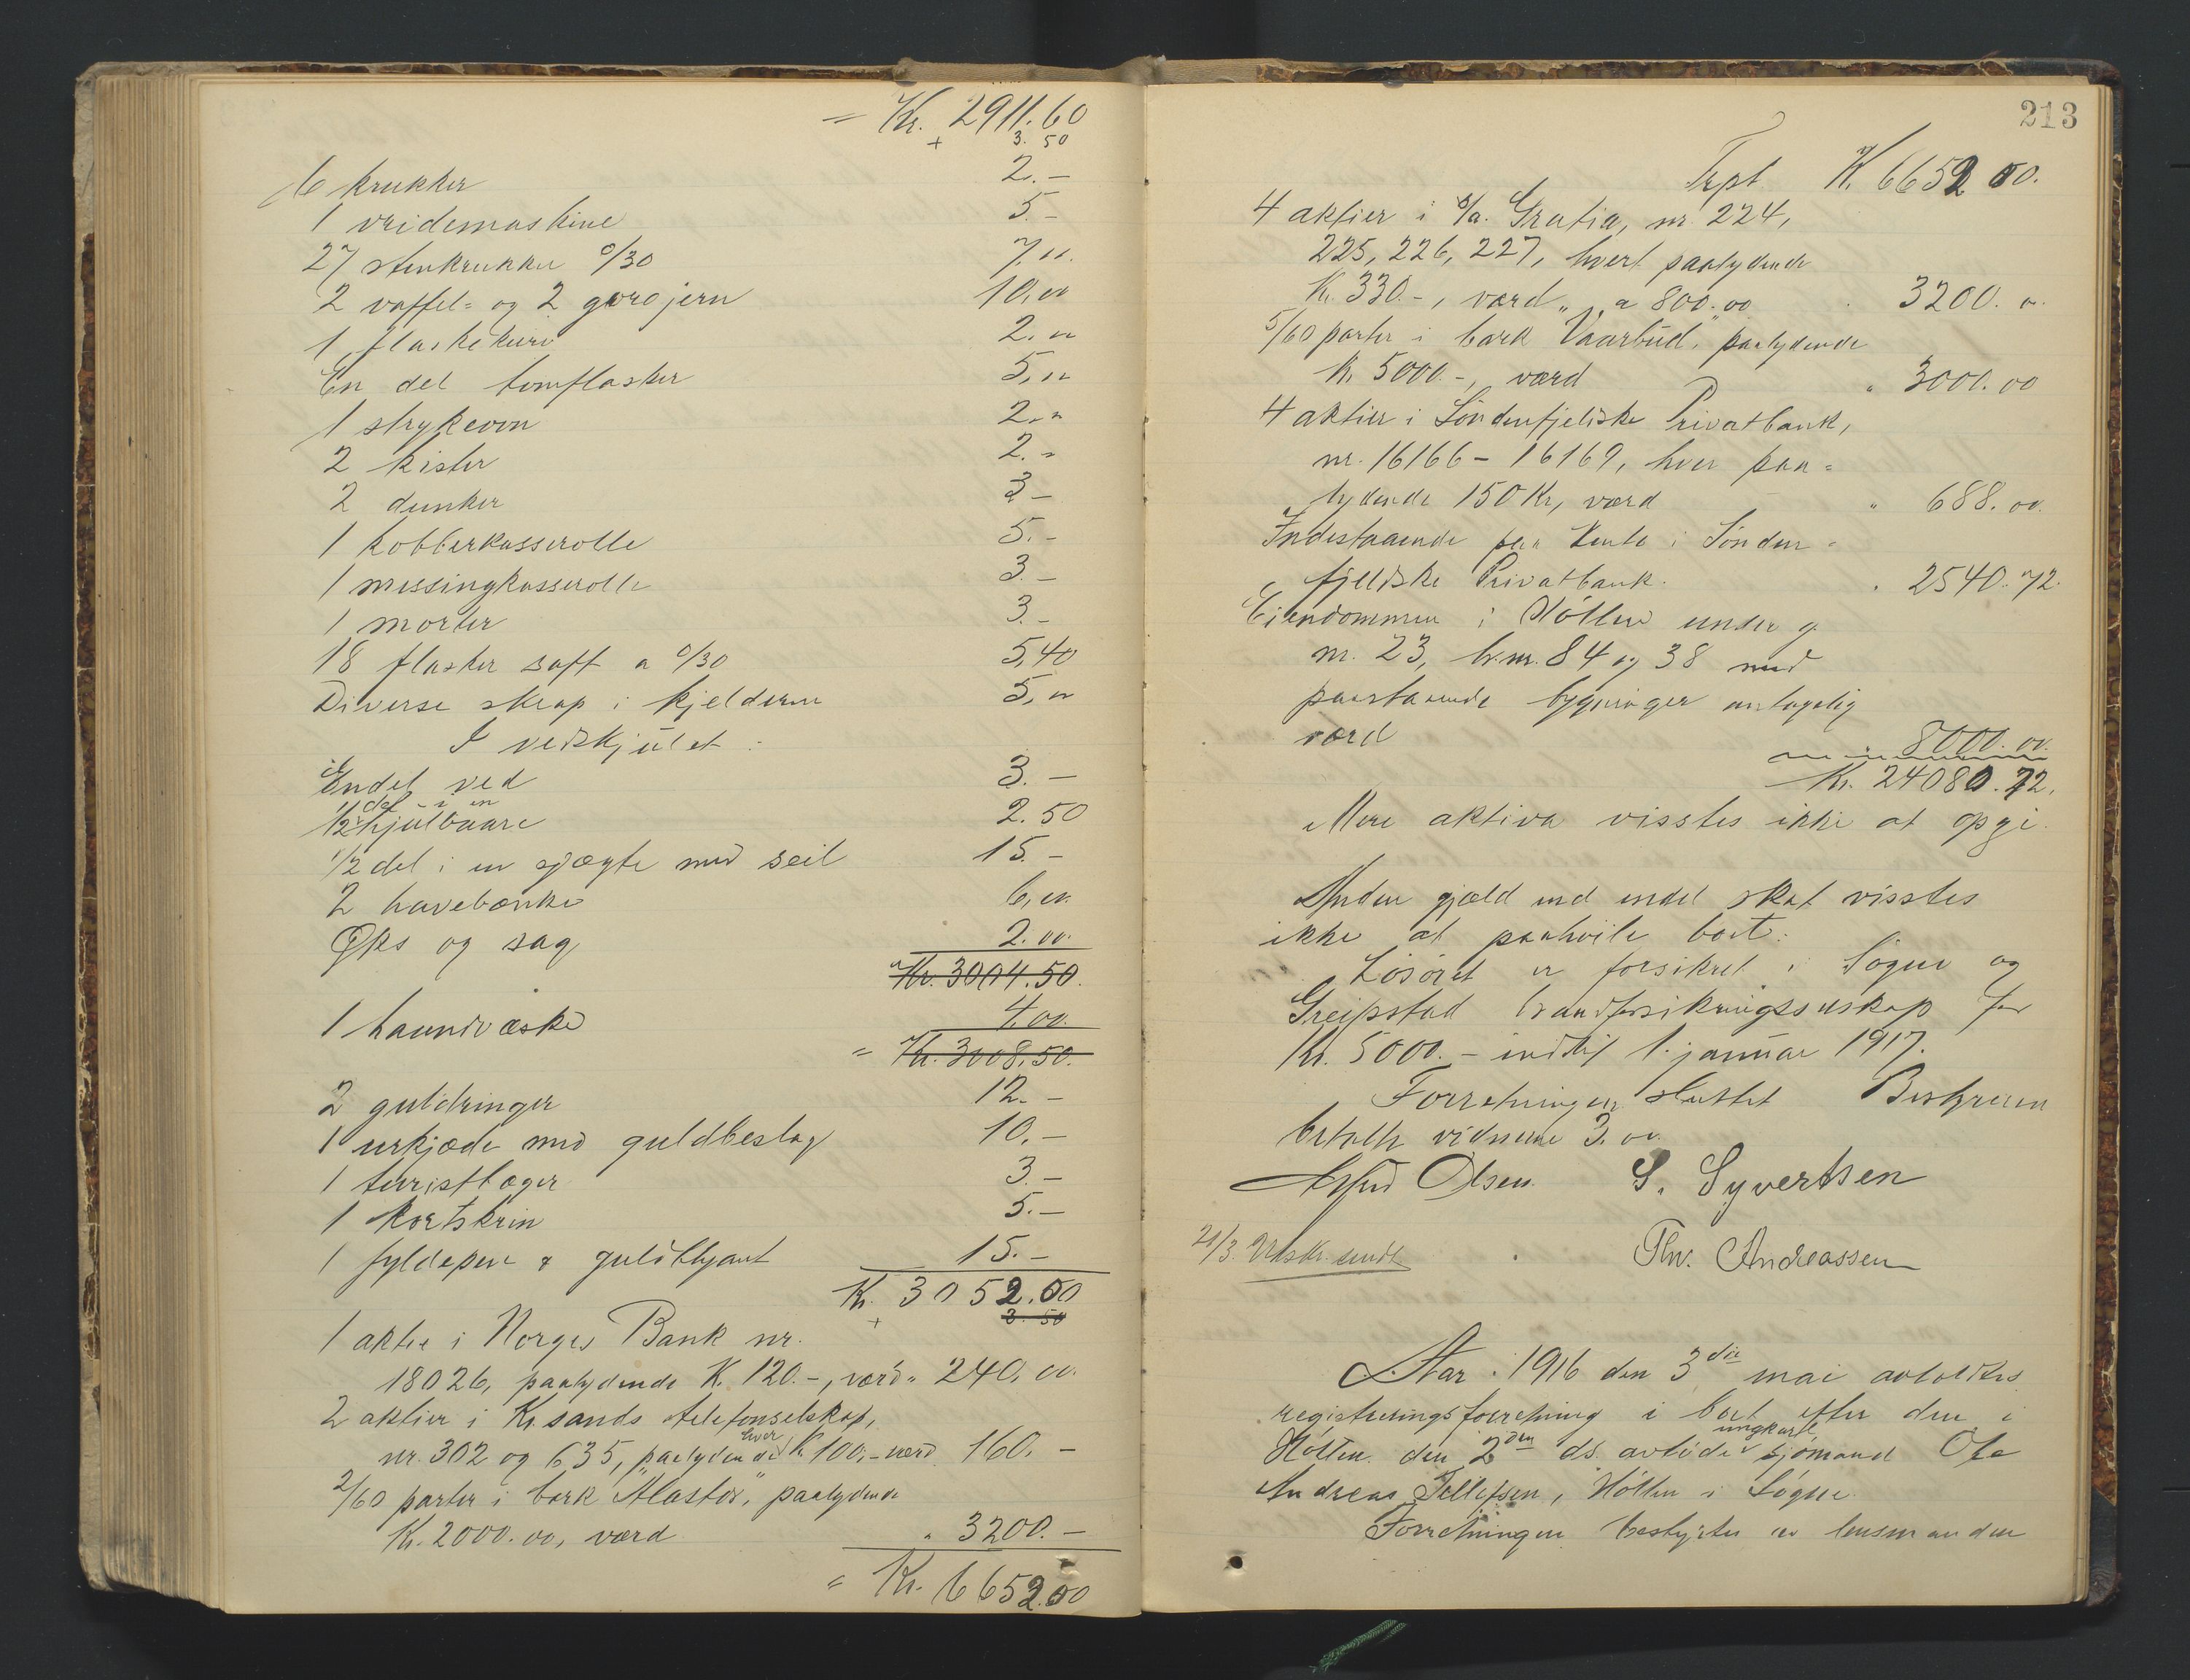 = Kr. 2911.60
+ 3.50
6 krukker 2.-
1 vridemaskine 5.-
27 stenkrukker 0/30 7.00.
2 vaffel= og 2 gorojern 10,00
1 flaskekurv 2.00
En del tomflasker 5,00
1 strykeovn 2.00
2 kister 2.-
2 dunker 3-
1 kobberkasserolle 5.-
1 messingkasserolle 3.-
1 morter 3.-
18 flasker saft a 0/30 5,40
Diverse skrap i kjelderen 5,00
I vedskjulet:
Endel ved 3.-
1/2 del i en
hjulbaare 2.50
1/2 del i en sjægte med seil 15.-
2 havebænke 6,00.
Øks og sag 2.00.
Kr. 3004.50.
1 haandvæske 4.00.
= Kr. 3008,50.
2 guldringer 12.-
1 urkjæde med guldbeslag 10.-
1 turistbæger 3.-
1 kortskrin 5.-
1 fyldepen & guldblyant 15.-
Kr. 3052.00
+ 3.50
1 aktie i Norges Bank nr.
18026, paalydende K. 120.-, værd " 240,00.
2 aktier i Kr.sands telefonselskap,
nr. 302 og 635, paalydende hver K 100,- værd 160.-
2/60 parter i bark "Alastor", paalydende
Kr. 2000.00, værd " 3200.-
= Kr. 6652.00
213
Trpt K. 6652 00.
4 aktier i S/a. Gratia, nr. 224,
225, 226, 227, hvert paalydende
Kr. 330.-, værd " a 800.00 3200.00.
5/60 parter i bark "Vaarbud", paalydende
Kr. 5000.-, værd " 3000.00
4 aktier i Söndenfjeldske Privatbank,
nr. 16166 - 16169, hver paa=
lydende 150 Kr, værd " 688.00.
Indestaaende paa rente i Sönden=
fjeldske Privatbank. " 2540.72.
Eiendommen i Höllen under g.
nr. 23, br.nr. 84 og 38 med
paastaaende bygninger antagelig
værd " 8000.00.
Kr. 24080.72.
Mere aktiva visstes ikke at opgi.
Anden gjæld end endel skat visstes
ikke at paahvile boet.
Lösöret er forsikret i Sögne og
Greipstad brandforsikringsselskap for
Kr. 5000.- indtil 1. januar 1917.
Forretningen sluttet Bestyreren
betalte vidnerne 3.00
Olsen. S. Syvertsen
21/3. Utskr. sendt Thv. Andreassen
Aar 1916 den 3die mai avholdtes
registreringsforretning i boet efter den i
Höllen den 2den ds. avdöde ungkarl sjömand Ole
Andreas Tellefsen, Höllen i Sögne.
Forretningen bestyrtes av lensmanden